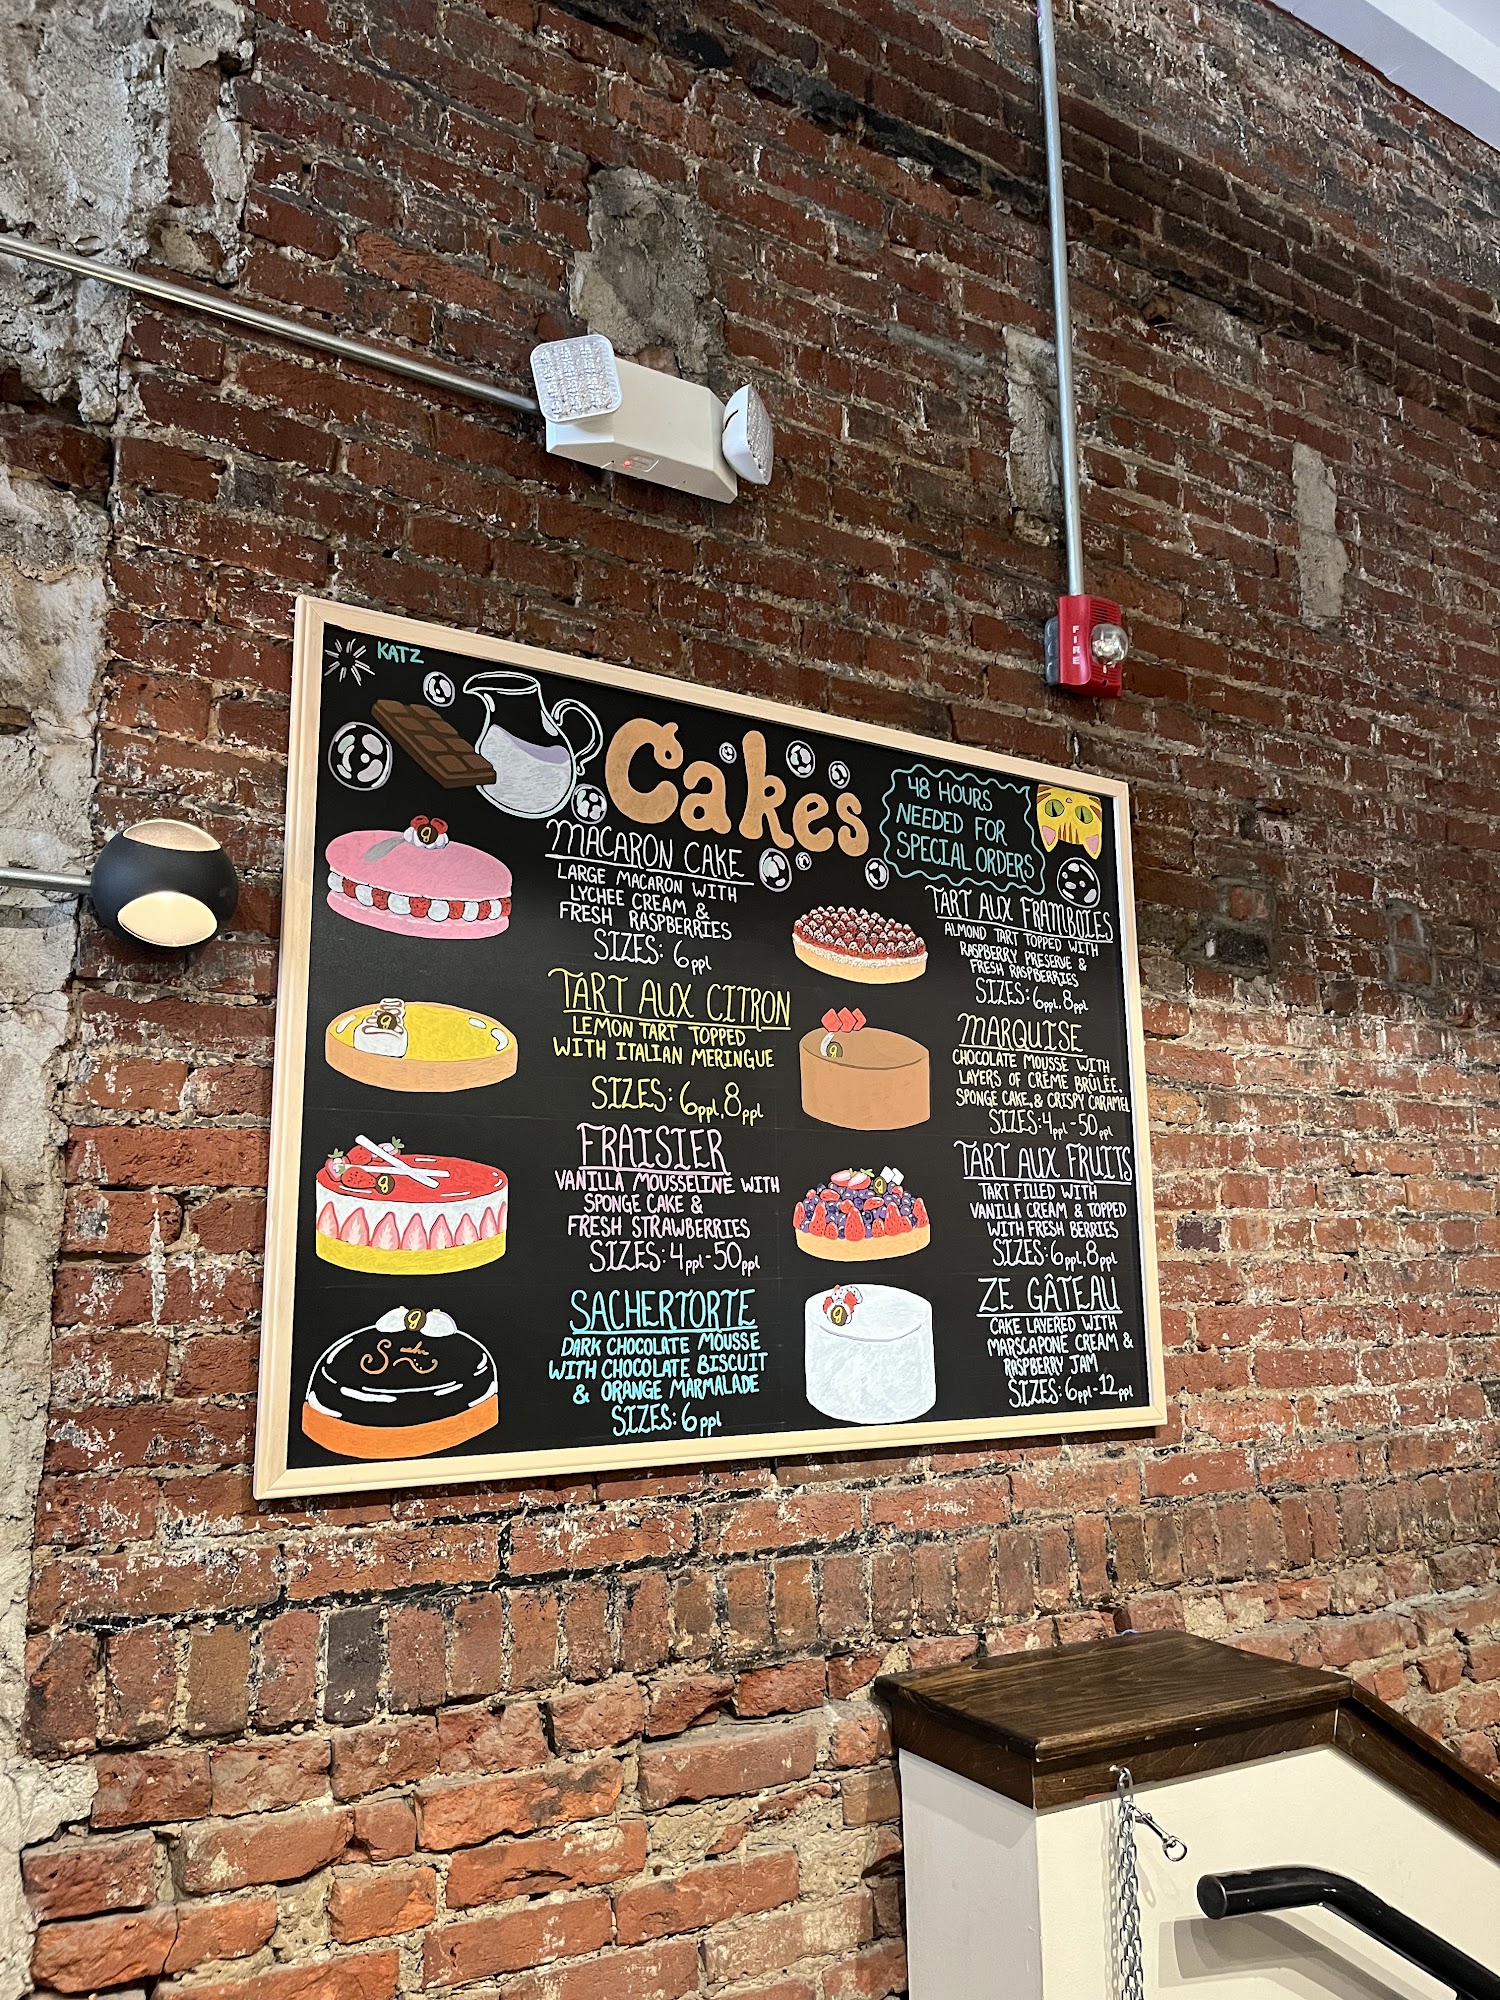 KATZ
Cakes
48 HOURS
NEEDED FOR
SPECIAL ORDERS
MACARON CAKE
LARGE MACARON WITH
LYCHEE CREAM &
FRESH RASPBERRIES
SIZES: 6ppl
TART AUX CITRON
LEMON TART TOPPED
WITH ITALIAN MERINGUE
SIZES: 6ppl, 8ppl
FRAISIER
VANILLA MOUSSELINE WITH
SPONGE CAKE &
FRESH STRAWBERRIES
SIZES: 4ppl-50ppl
SACHERTORTE
DARK CHOCOLATE MOUSSE
WITH CHOCOLATE BISCUIT
& ORANGE MARMALADE
SIZES: 6ppl
TART AUX FRAMBOIES
ALMOND TART TOPPED WITH
RASPBERRY PRESERVE &
FRESH RASPBERRIES
SIZES: 6ppl, 8ppl
MARQUISE
CHOCOLATE MOUSSE WITH
LAYERS OF CRÈME BRÛLÉE.
SPONGE CAKE, & CRISPY CARAMEL
SIZES: 4ppl-50ppl
TART AUX FRUITS
TART FILLED WITH
VANILLA CREAM & TOPPED
WITH FRESH BERRIES
SIZES: 6ppl, 8ppl
ZE GÂTEAU
CAKE LAYERED WITH
MARSCAPONE CREAM &
RASPBERRY JAM
SIZES: 6ppl-12ppl
FIRE